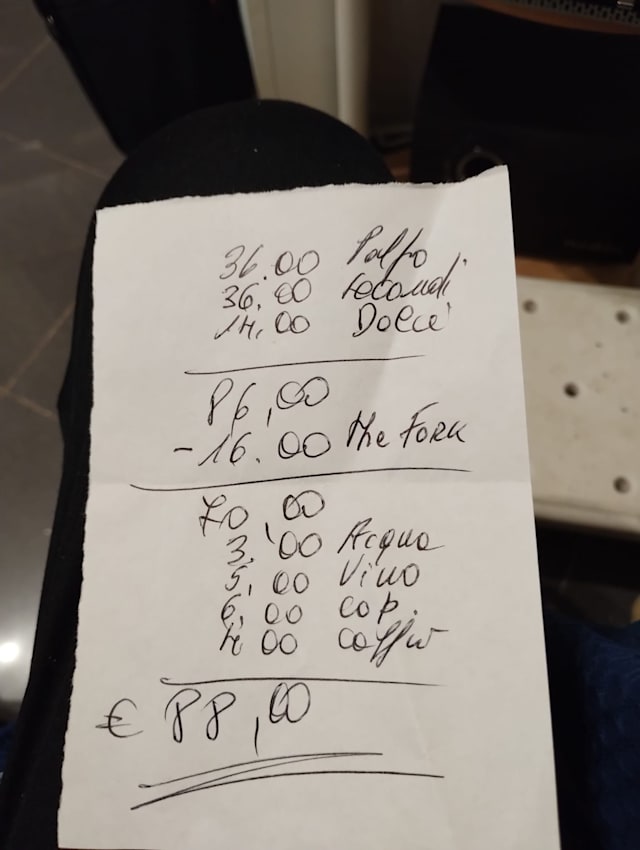 36.00 Polpo
36,00 secondi
14,00 Dolce
86,00
-16.00 the FORK
70,00
3,00 Acqua
5,00 Vino
6,00 cop.
4,00 caffè
€ 88,00